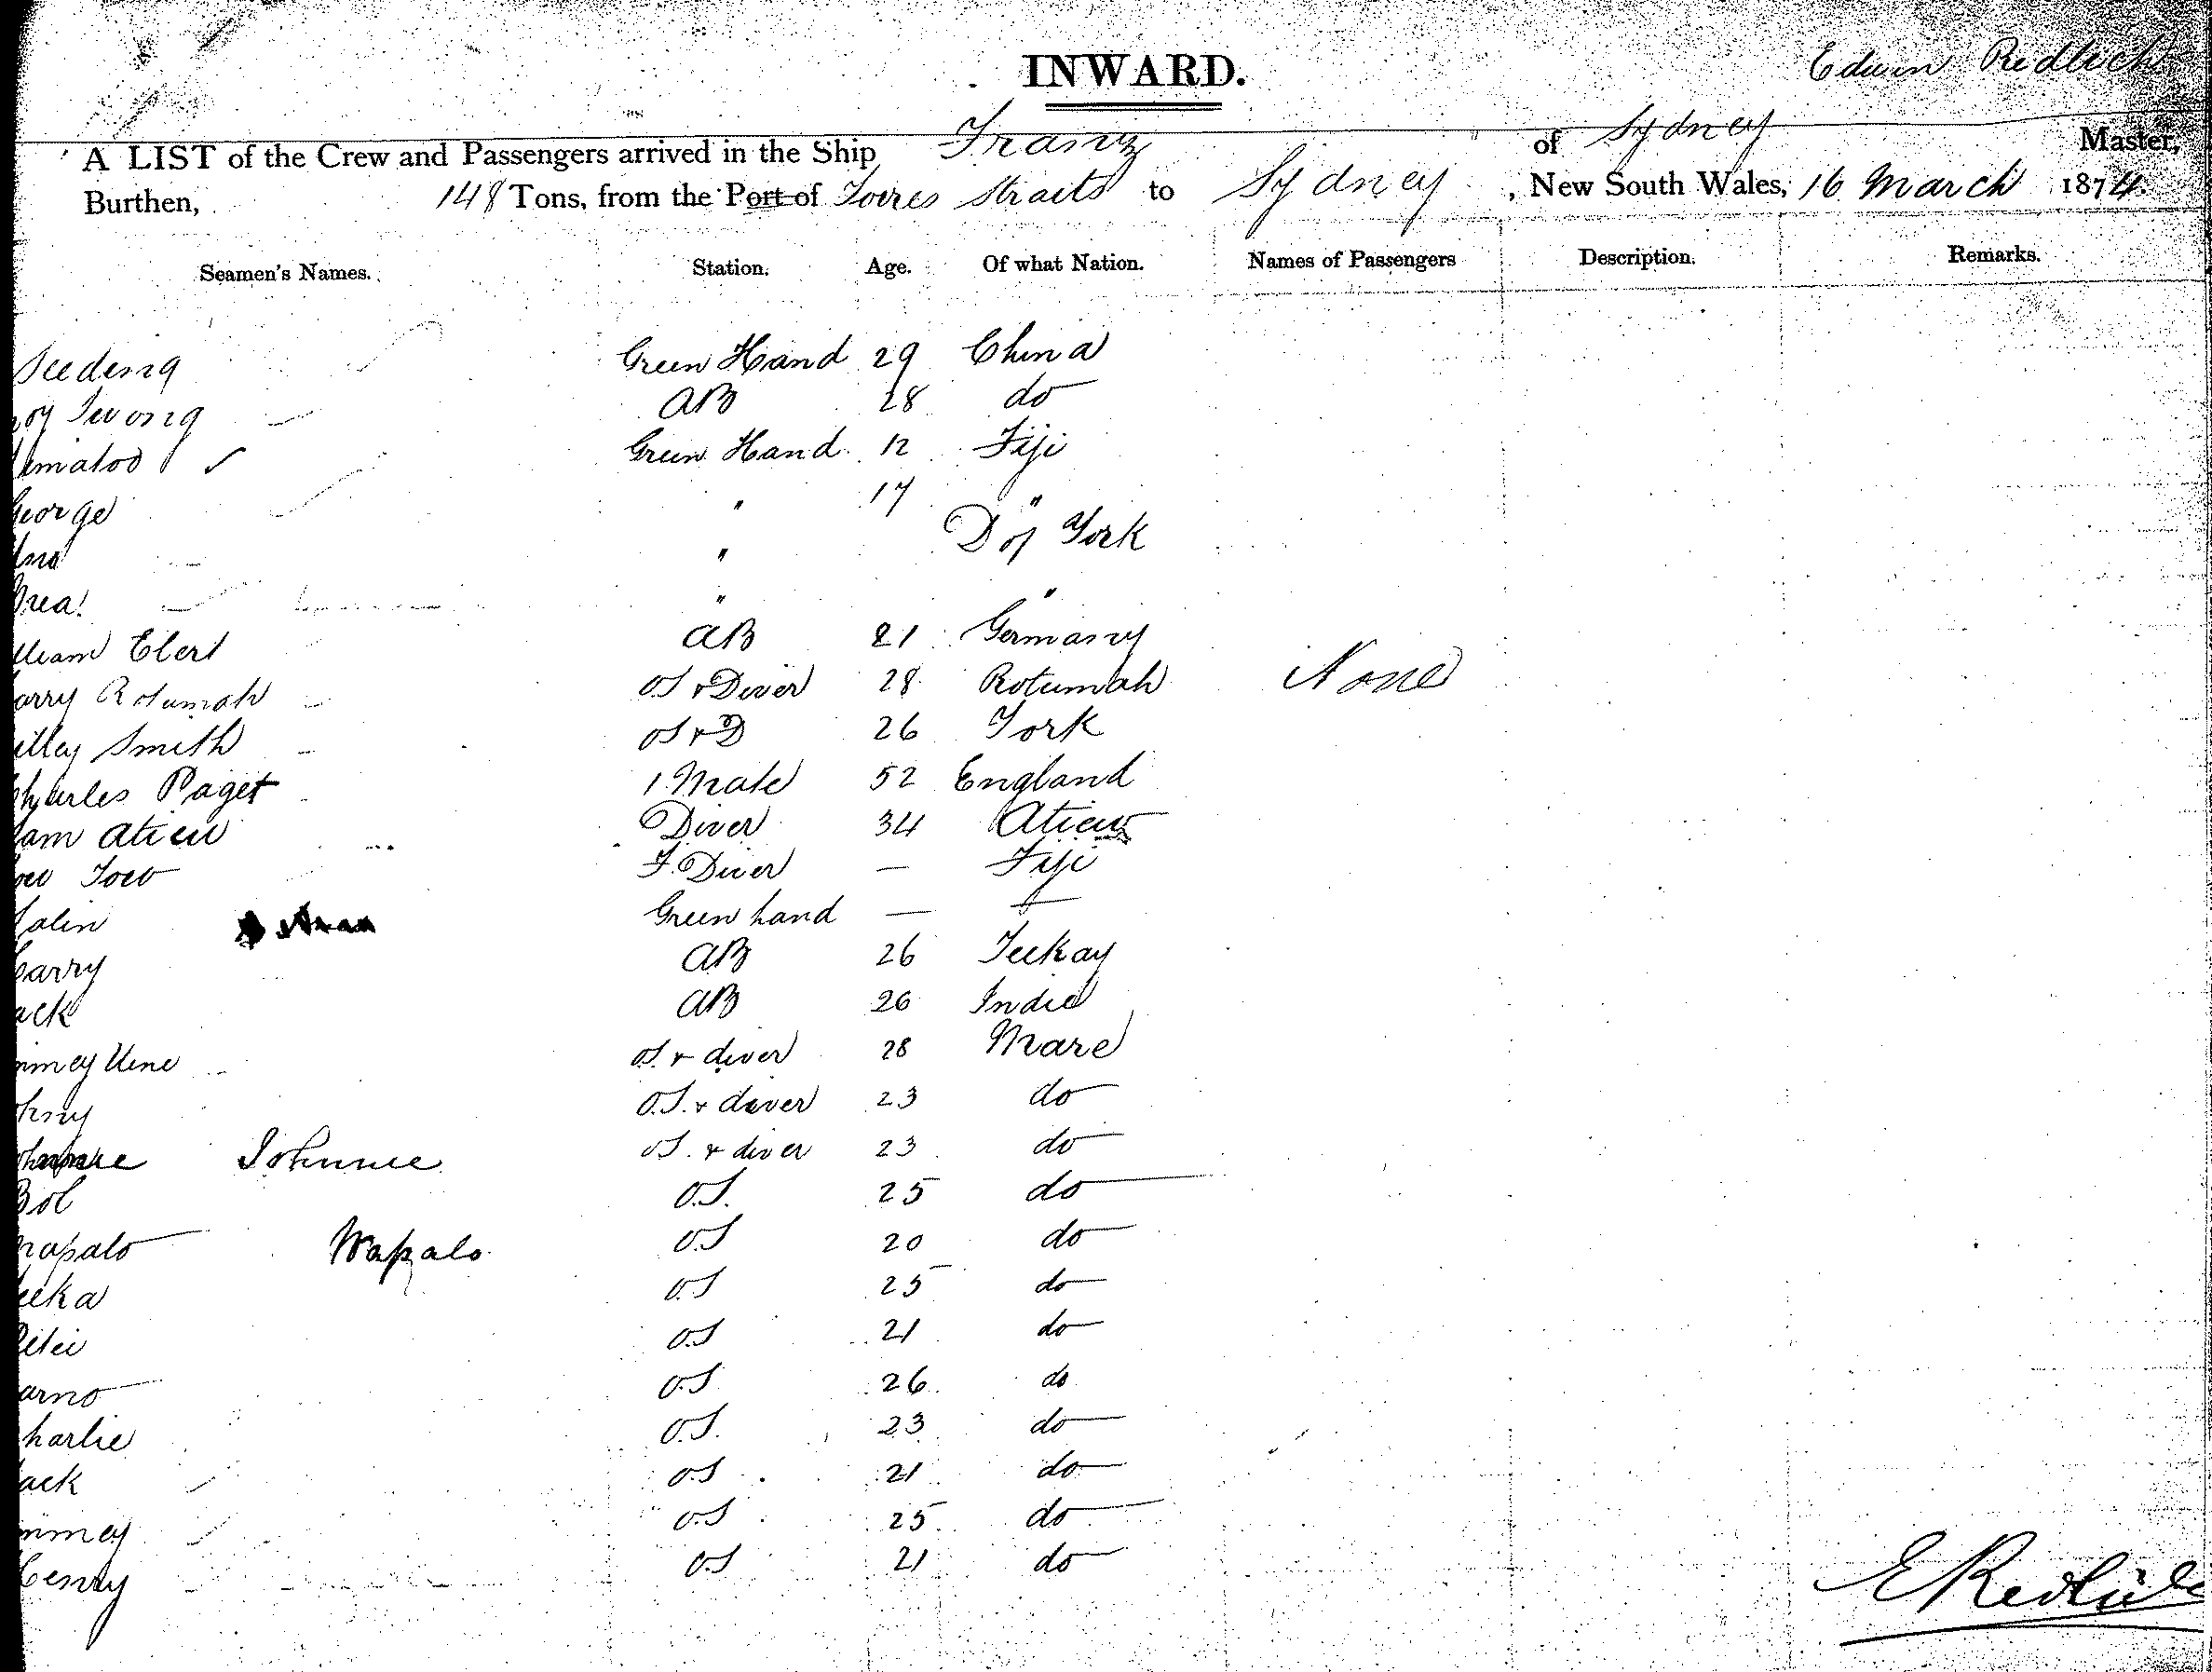 INWARD.
Edwin Redlich
A LIST of the Crew and Passengers arrived in the Ship Franz of Sydney Master,
Burthen, 148 Tons, from the Port of Torres Straits to Sydney, New South Wales, 16 March 1874.
Seamen's Names. Station. Age. Of what Nation. Names of Passengers Description. Remarks.
Green Hand 29 China
AB 28 do
Green Hand 12 Fiji
George " 17 "
" D of York
" "
lliam Ebert AB 21 Germany
arry Rotumah OS & Diver 28 Rotumah None
illey Smith OS & D 26 York
Charles Paget 1 Mate 52 England
am Atieu Diver 34 Atieu
Tow F. Diver — Fiji
Green hand —
arry AB 26 Teekay
ack AB 26 India
mmey Uene OS & diver 28 Mare
ohny O.S. & diver 23 do
Johnnie OS. & diver 23 do
Bob O.S. 25 do
Wapalo O.S 20 do
O.S 25 do
O.S 21 do
arno O.S 26 do
harlie O.S. 23 do
ack O.S 21 do
mmey O.S 25 do
Henry O.S 21 do
E Redlich